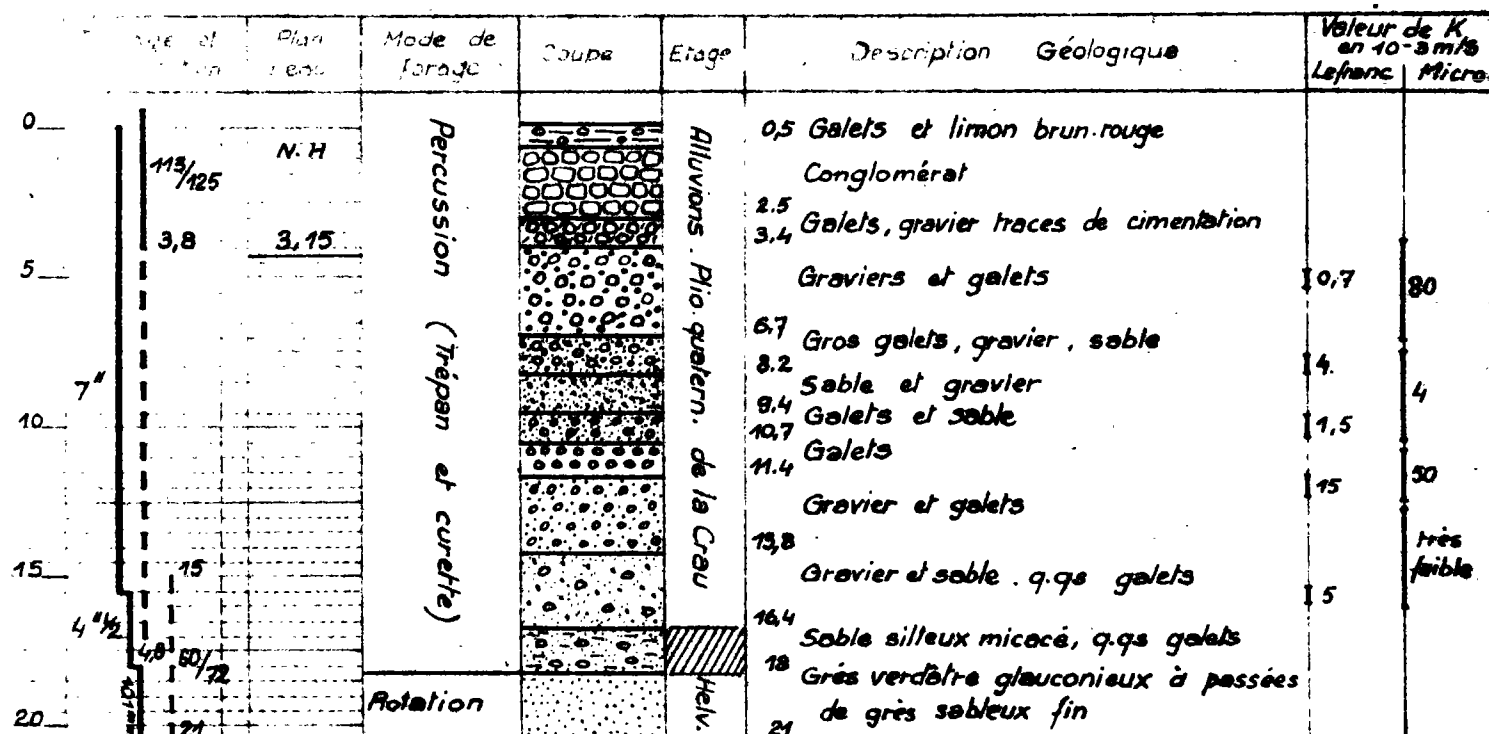 Plan
Mode de forage
Coupe
Etage
Description Géologique
Valeur de K
en 10-3 m/s
Lefranc
Micro
0
5
10
15
20
7"
4"1/2
113/125
3,8
15
4,8
60/72
21
N.H
3,15
Percussion (Trépan et curette)
Rotation
Alluvions. Plio quatern. de la Crau
Helv.
0,5 Galets et limon brun.rouge
Conglomérat
2.5
Galets, gravier traces de cimentation
3.4
Graviers et galets
6,7
Gros galets, gravier, sable
8.2
Sable et gravier
9.4
Galets et sable
10,7
Galets
11.4
Gravier et galets
13,8
Gravier et sable . q.qs galets
16,4
Sable silteux micacé, q.qs galets
18
Grés verdâtre glauconieux à passées
de grès sableux fin
21
0,7
4.
1,5
15
5
80
4
50
très
faible